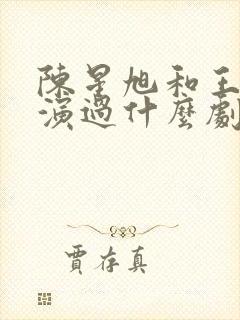 陳星旭和王
演過什麼劇
賈存真